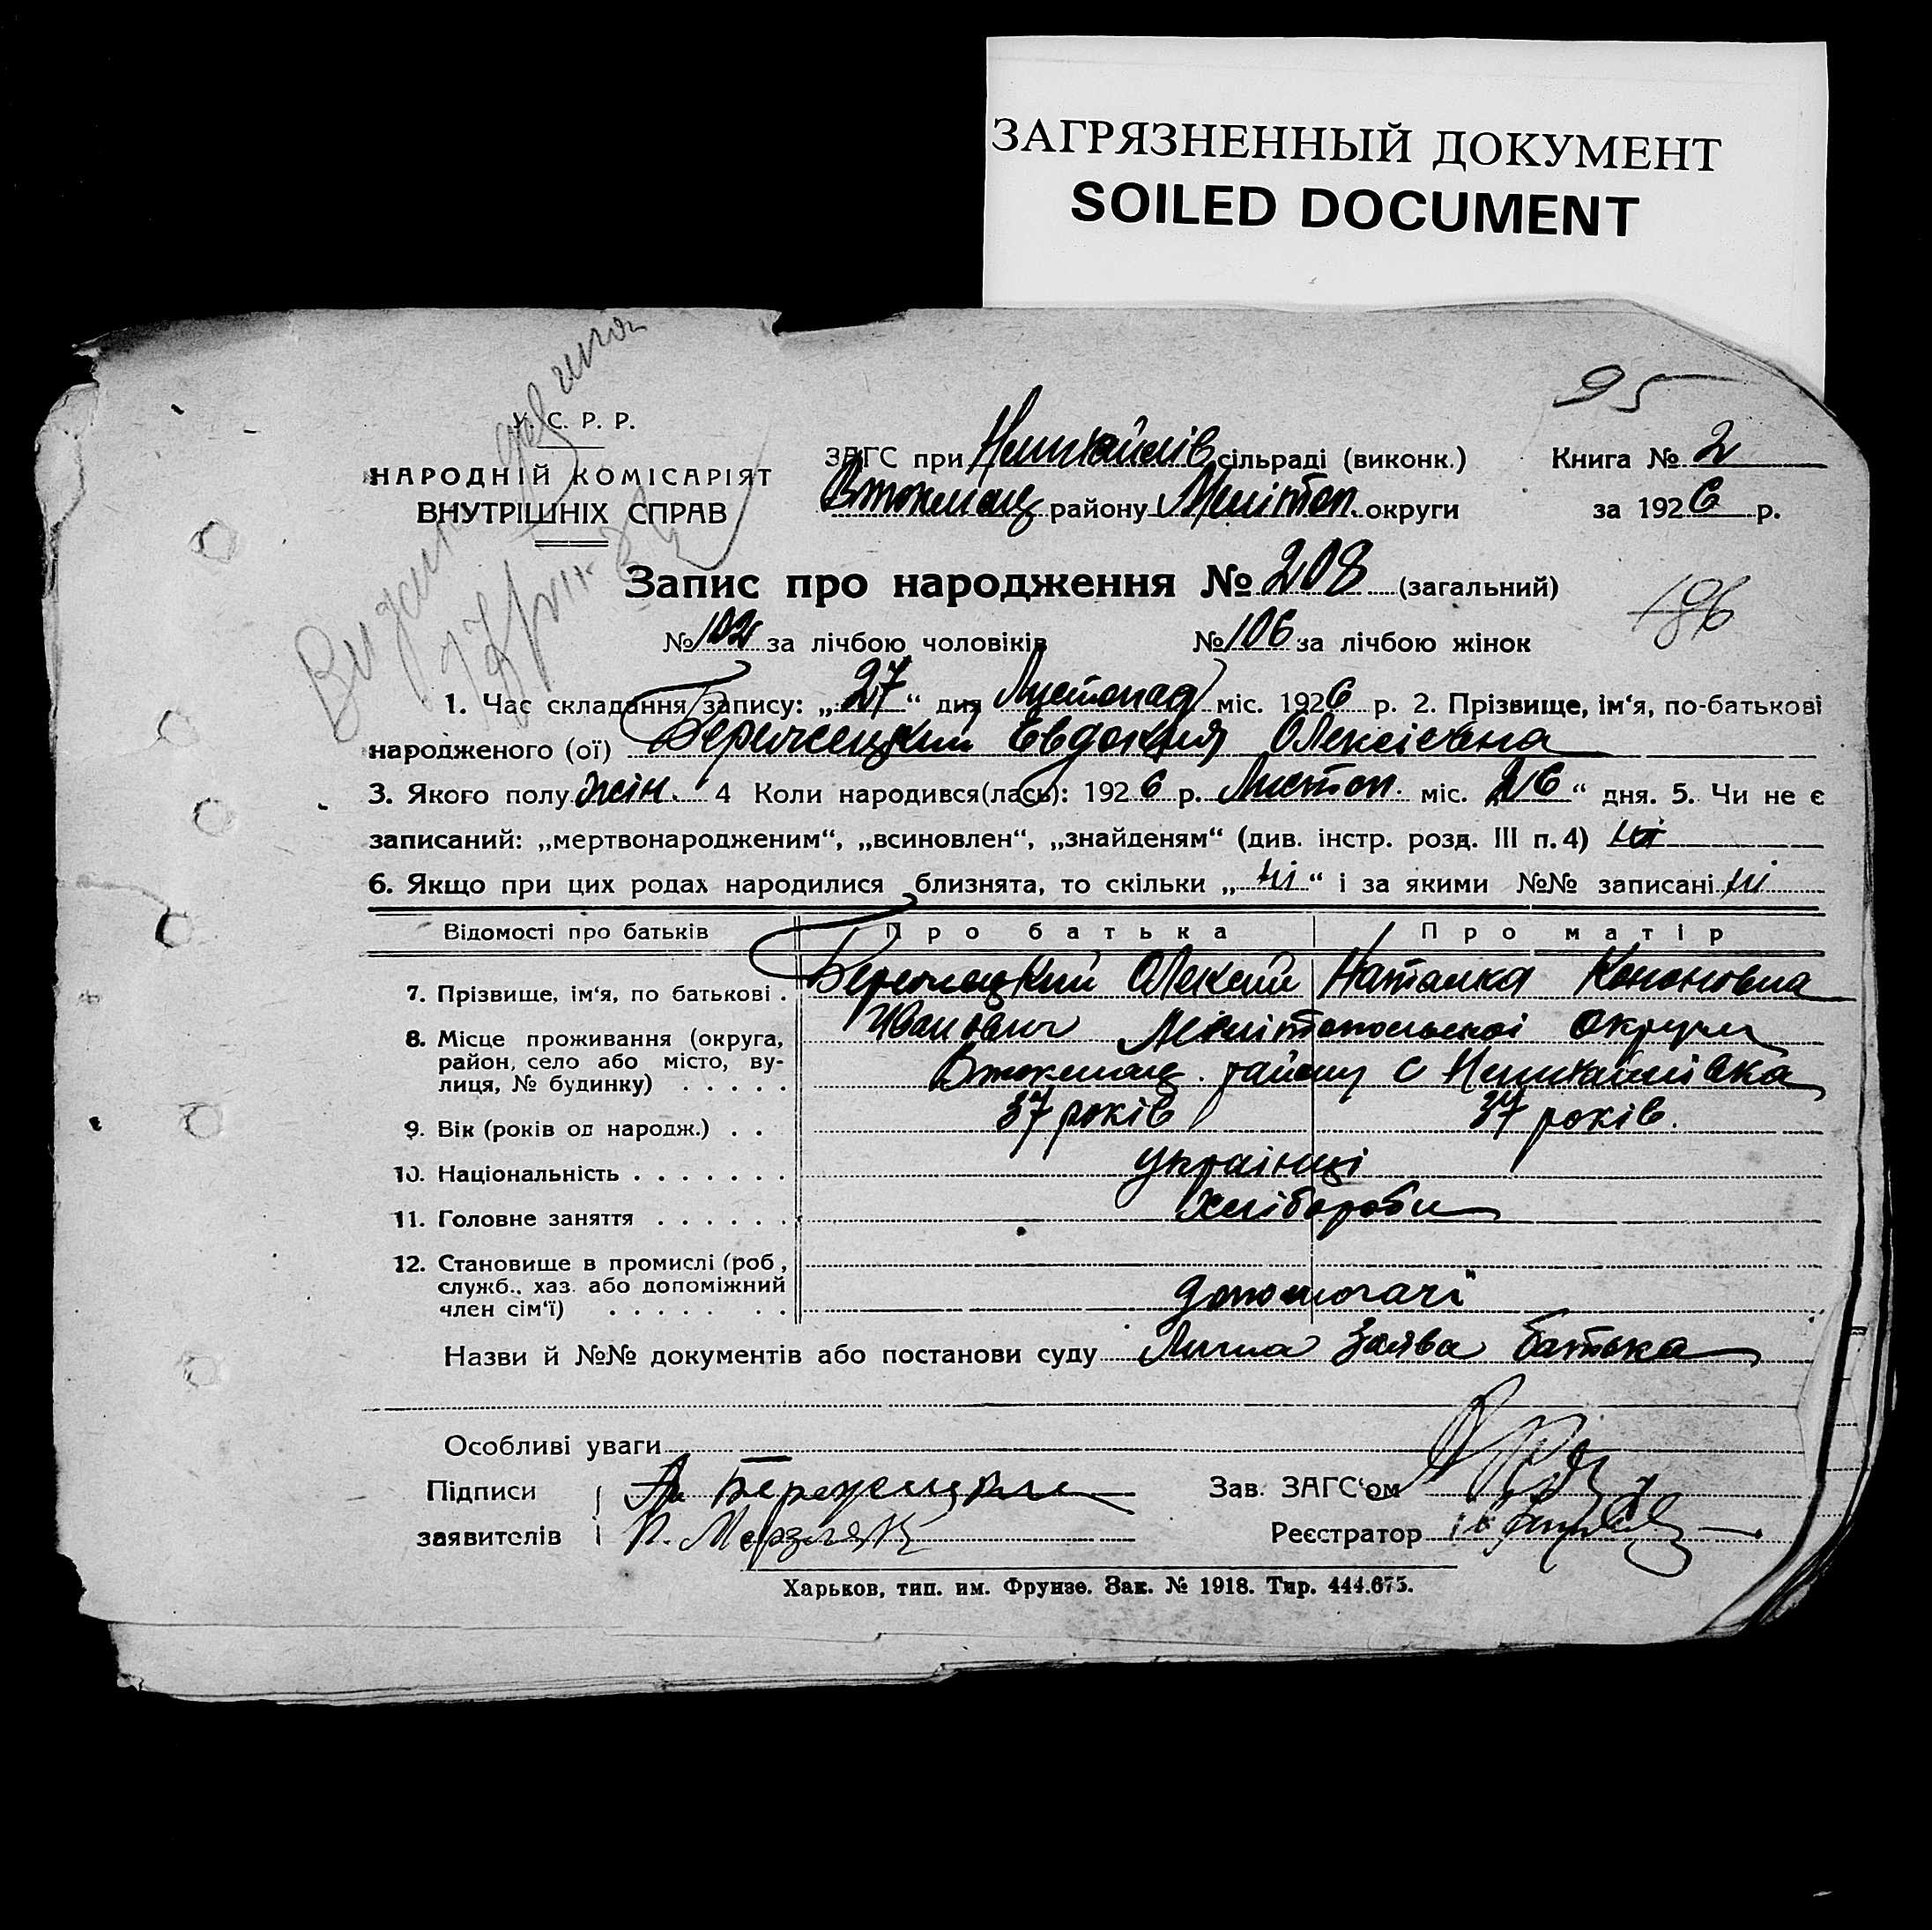 ЗАГРЯЗНЕННЫЙ ДОКУМЕНТ
SOILED DOCUMENT
95
У. С. Р. Р.
НАРОДНІЙ КОМІСАРІЯТ
ВНУТРІШНІХ СПРАВ
ЗАГС при сільраді (виконк.) Книга № 2
Втокмац району Меліто́п. округи за 1926 р.
Запис про народження № 208 (загальний)
№ 102 за лічбою чоловіків № 106 за лічбою жінок
196
1. Час складання запису: „27“ дня Листопад міс. 1926 р. 2. Прізвище, ім‘я, по-батькові
народженого (ої) Евдокия Олексіевна
3. Якого полу жін. 4 Коли народився(лась): 1926 р. Листоп. міс. 26“ дня. 5. Чи не є
записаний: „мертвонародженим“, „всиновлен“, „знайденям“ (див. інстр. розд. III п. 4) ні
6. Якщо при цих родах народилися близнята, то скільки „ні“ і за якими №№ записані ні
Відомості про батьків Про батька Про матір
7. Прізвище, ім‘я, по батькові . Олексий Наталка Кононовна
Иванович Мелітопольскоі округи
8. Місце проживання (округа,
район, село або місто, ву-
лиця, № будинку) . . . . . Втокмац. району с
9. Вік (років од народж.) . . 37 років 37 років.
10. Національність . . . . . . . українці
11. Головне заняття . . . . . . Хлібороби
12. Становище в промислі (роб,
служб., хаз. або допоміжний
член сім‘ї) . . . . . . . допомогачі
Назви й №№ документів або постанови суду Лична заява батька
Особливі уваги
Підписи Зав. ЗАГС‘ом
заявителів Реєстратор
Харьков, тип. им. Фрунзе. Зак. № 1918. Тир. 444.675.